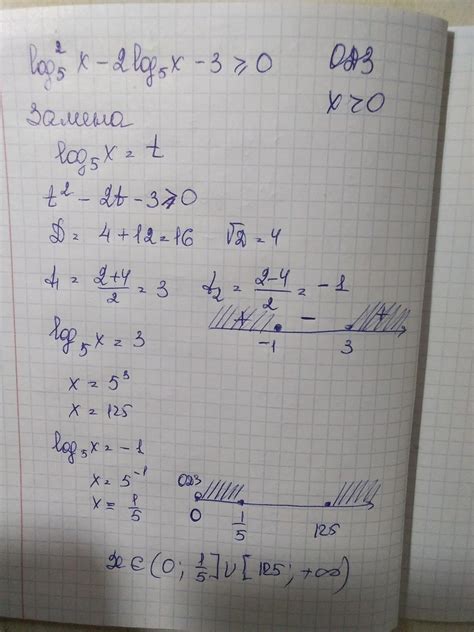 log₅² x − 2log₅x − 3 ⩾ 0
ОДЗ
x > 0
Замена
log₅x = t
t² − 2t − 3 ⩾ 0
D = 4 + 12 = 16   √D = 4
t₁ = (2+4)/2 = 3   t₂ = (2−4)/2 = −1
+ − +
−1 3
log₅x = 3
x = 5³
x = 125
log₅x = −1
x = 5⁻¹
x = 1/5
ОДЗ
0 1/5 125
x ∈ (0; 1/5] ∪ [125; +∞)